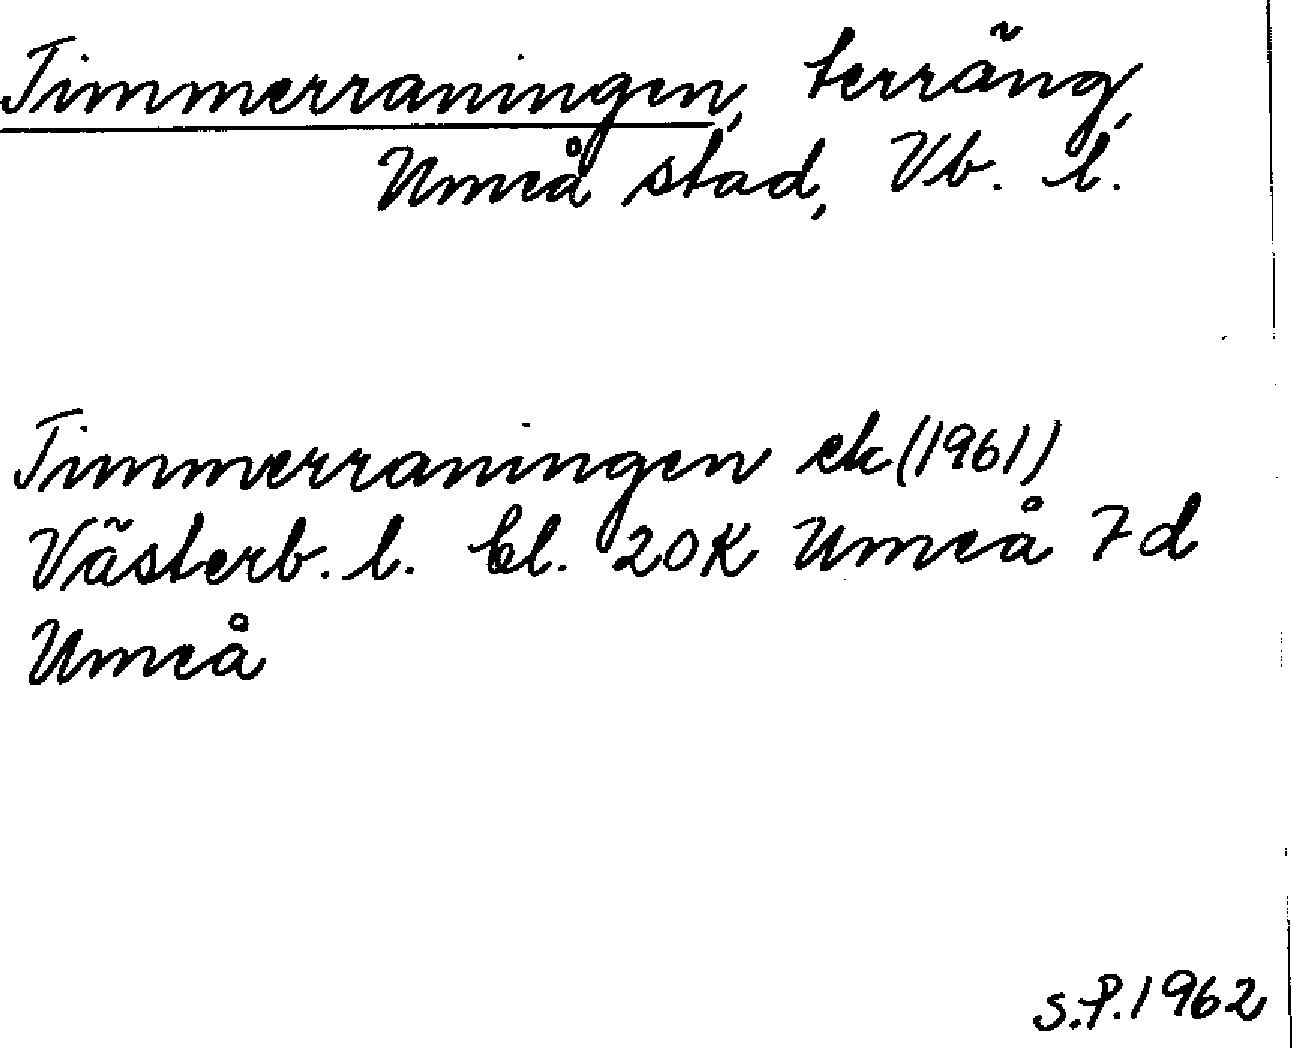 Timmerraningen, terräng,
Umeå stad, Vb. l.
Timmerraningen ek (1961)
Västerb. l. bl. 20K Umeå 7d
Umeå
S.P. 1962